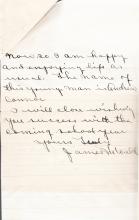 now so I am happy
and enjoying life as
usual. The name of
this young man is Andrew
Connor
I will close wishing
you success with the
coming school year
Yours Truly
James